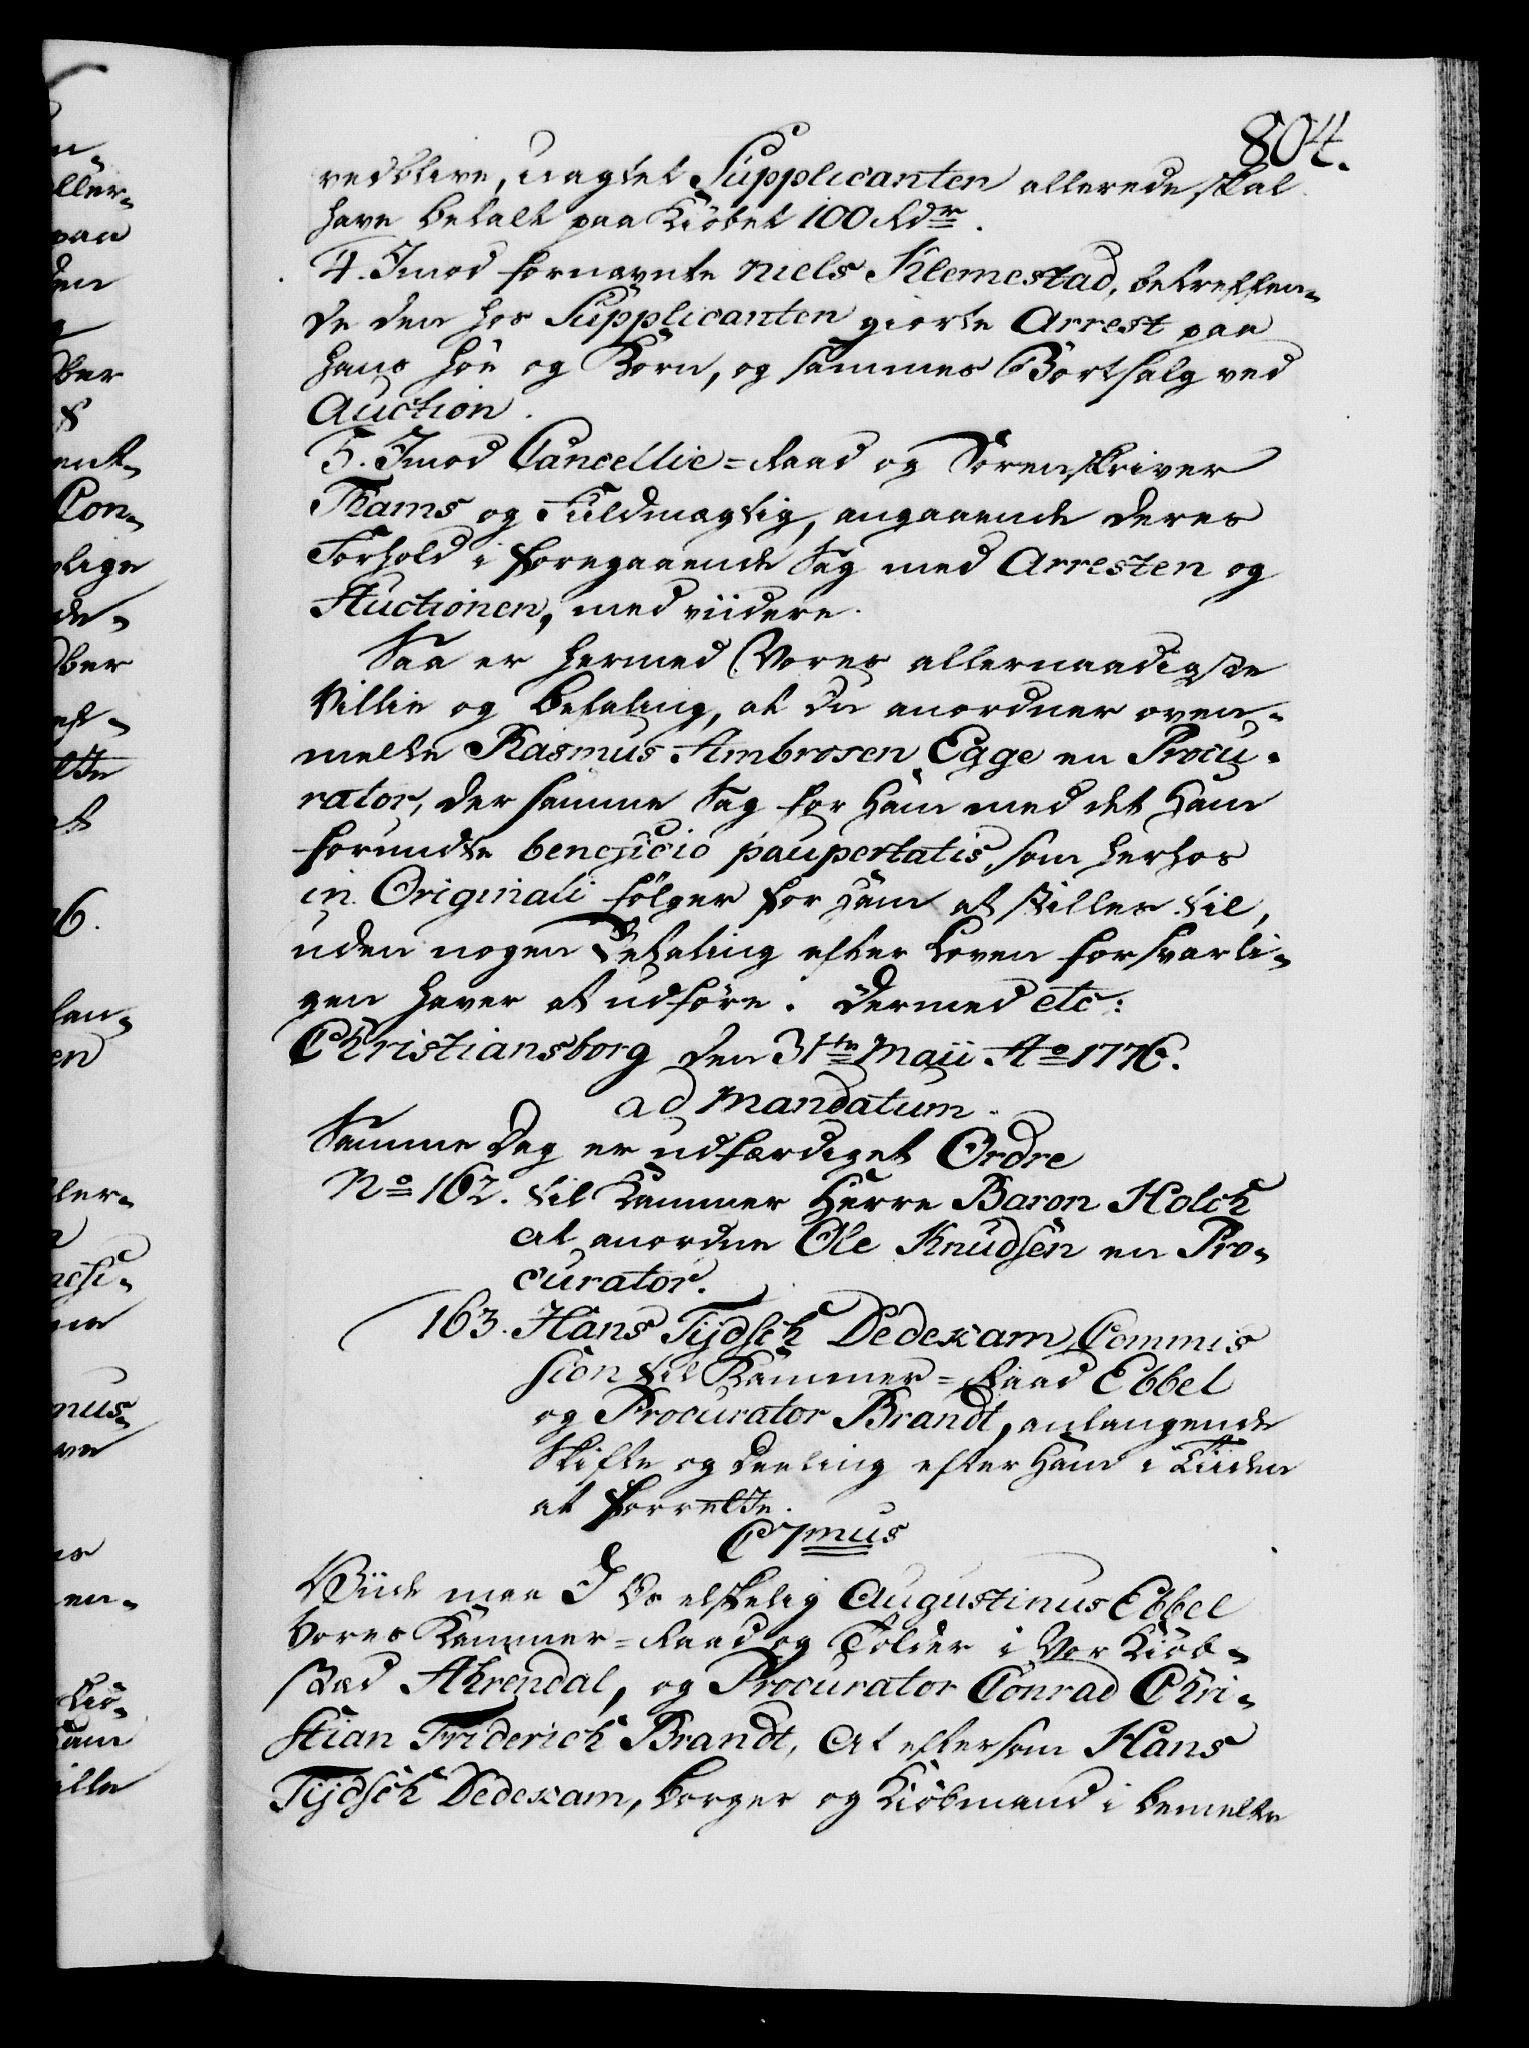 804.
vedblive, uagtet Supplicanten allerede skal
have betalt paa Kiöbet 100 Rdr.
4. Imod fornævnte Niels Klemestad, betreffen-
de den hos Supplicanten giorte Arrest paa
hans Höe og Korn, og sammes Bortsalg ved
Auction.
5. Imod Cancellie-Raad og Sorenskriver
Thams og Fuldmægtig, angaaende deres
Forhold i foregaaende Sag med Arresten og
Auctionen, med viidere.
Saa er hermed Vores allernaadigste
Villie og Befaling, at du anordner oven-
melte Rasmus Ambrosen Egge en Procu-
rator, der samme Sag for ham med det ham
forundte beneficio paupertatis, som herhos
in Originali fölger for ham at stilles til,
uden nogen Betaling efter Loven forsvarli-
gen haver at udföre. Dermed etc:
Christiansborg den 31te Maii Ao 1776.
ad Mandatum.
Samme Dag er udfærdiget Ordre
No 162. til Kammer Herre Baron Holck
at anordne Ole Knudsen en Pro-
curator.
163. Hans Tÿdsch Dedexam Commis
sion til Kammer-Raad Ebbel
og Procurator Brandt, anlangende
Skifte og Deeling efter ham i Tiiden
at forrette.
C7mus
Viide maa I Os elskelig Augustinus Ebbel
Vores Kammer-Raad og Tolder i Vor Kiöb-
stæd Ahrendal, og Procurator Conrad Chri-
stian Friderich Brandt, At eftersom Hans
Tÿdsch Dedexam, Borger og Kiöbmand i bemelte